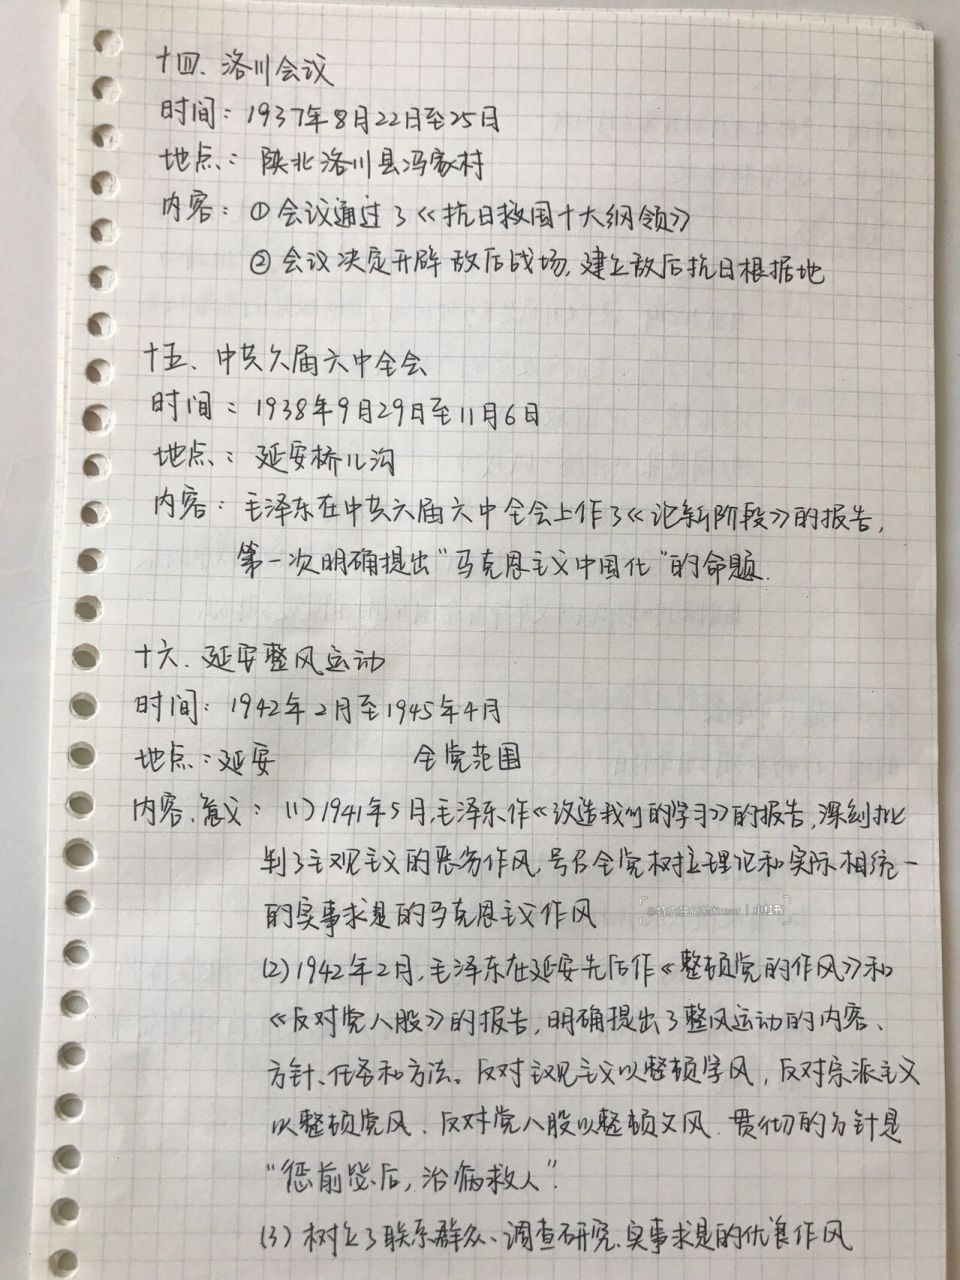 十四、洛川会议
时间：1937年8月22日至25日
地点：陕北洛川县冯家村
内容：①会议通过了《抗日救国十大纲领》
②会议决定开辟敌后战场，建立敌后抗日根据地
十五、中共六届六中全会
时间：1938年9月29日至11月6日
地点：延安桥儿沟
内容：毛泽东在中共六届六中全会上作了《论新阶段》的报告，
第一次明确提出“马克思主义中国化”的命题.
十六、延安整风运动
时间：1942年2月至1945年4月
地点：延安 全党范围
内容、意义：(1)1941年5月，毛泽东作《改造我们的学习》的报告，深刻批
判了主观主义的恶劣作风，号召全党树立理论和实际相统一
的实事求是的马克思主义作风
小红书
(2)1942年2月，毛泽东在延安先后作《整顿党的作风》和
《反对党八股》的报告，明确提出了整风运动的内容、
方针、任务和方法。反对主观主义以整顿学风，反对宗派主义
以整顿党风、反对党八股以整顿文风.贯彻的方针是
“惩前毖后，治病救人”.
(3)树立了联系群众、调查研究、实事求是的优良作风